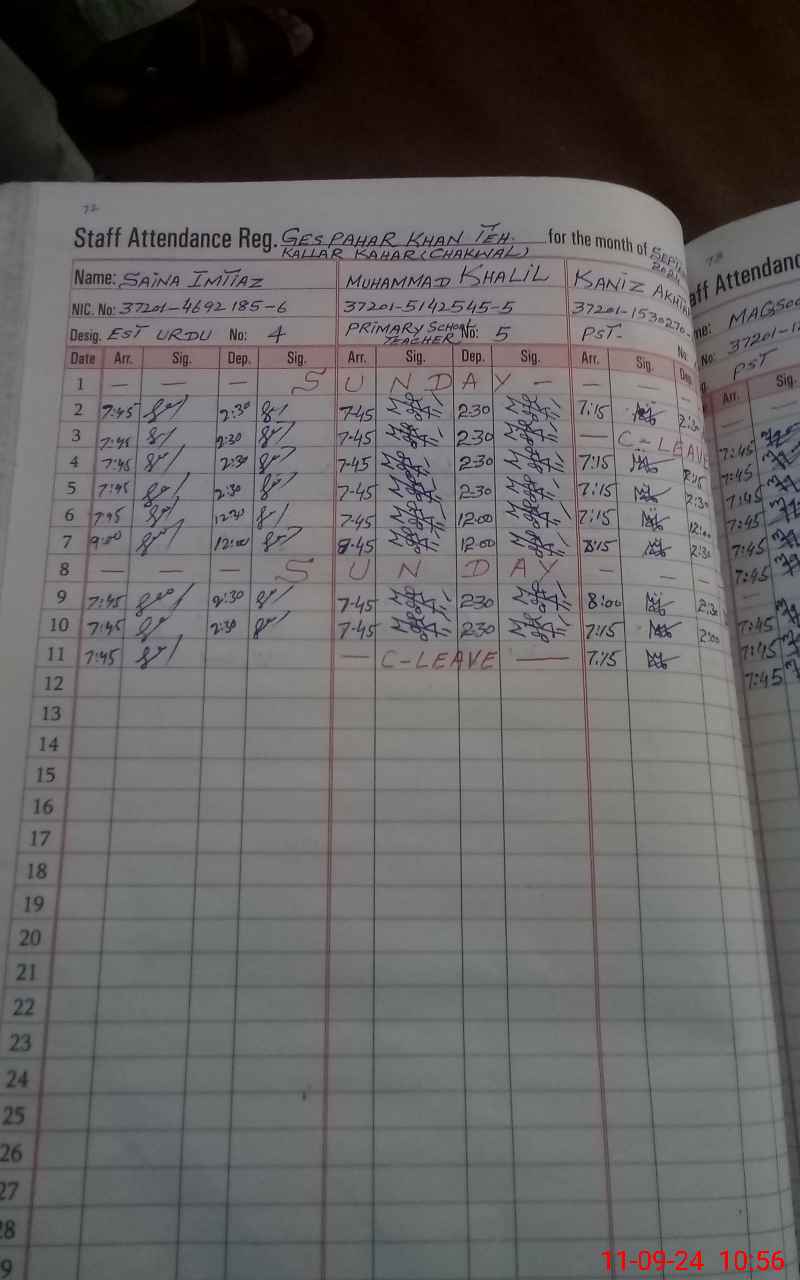 72
Staff Attendance Reg. GES PAHAR KHAN TEH. for the month of
KALLAR KAHAR (CHAKWAL)
Name: SAINA IMTIAZ MUHAMMAD KHALIL KANIZ AKHTAR
NIC. No: 37201-4692185-6 37201-5142545-5 37201-1530270-
Desig. EST URDU No: 4 PRIMARY SCHOOL TEACHER No: 5 PST- No:
Date Arr. Sig. Dep. Sig. Arr. Sig. Dep. Sig. Arr. Sig. Dep
1 — — — S U N D A Y — — — —
2 7:45 2:30 7-45 2-30 7:15 2:30
3 7:45 2:30 7-45 2-30 — C-LEAVE
4 7:45 2:30 7-45 2-30 7:15
5 7:45 2:30 7-45 2-30 7:15 2:30
6 7:45 12:30 7-45 12-00 7:15 12:00
7 9:00 12:00 8-45 12-00 8:15 2:30
8 — — — S U N D A Y — — —
9 7:45 2:30 7-45 2-30 8:00 2:30
10 7:45 2:30 7-45 2-30 7:15 2:00
11 7:45 — C-LEAVE — 7:15
12
13
14
15
16
17
18
19
20
21
22
23
24
25
26
27
28
9
73
aff Attendanc
me: MAGSOO
No: 37201-1
PST
Arr. Sig.
7:45
7:45
7:45
7:45
7:45
7:45
7:45
7:45
7:45
11-09-24 10:56